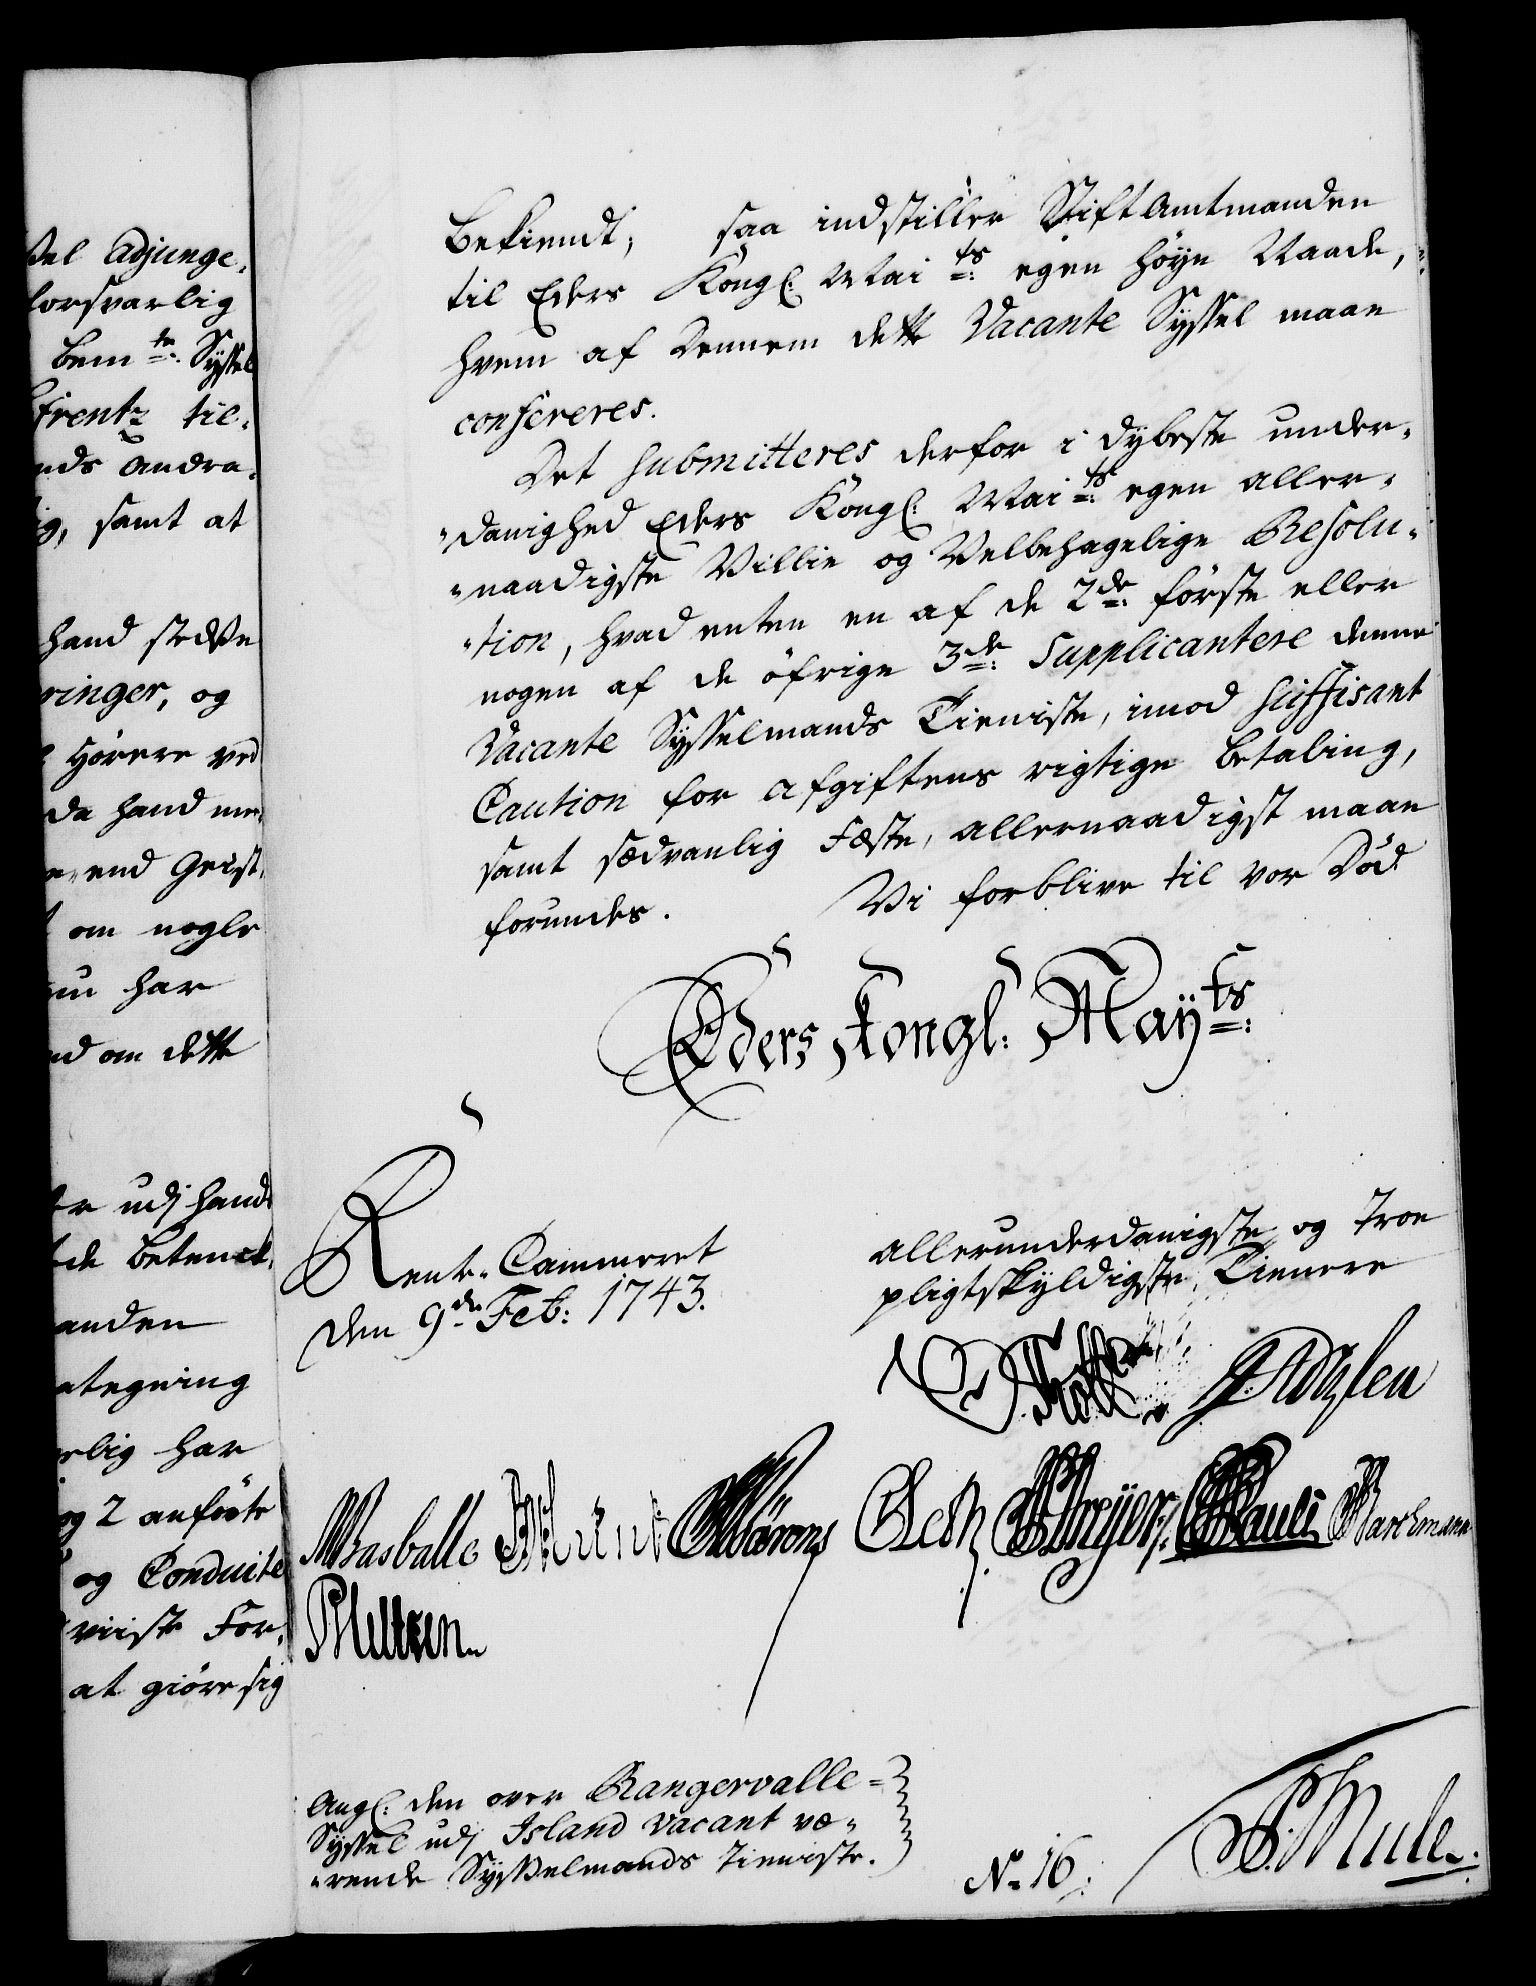 ßel adjunge,
forsvarlig
bem.te Syssel
frentz til,
nds andra,
ig, samt at
hand stedße
ringer, og
Hörere ved
da hand me,
end Geist,
om nogle
har
nd om dette
er udj hands
de betenck,
anden
ategning
rlig har
og 2 anförte
og Conduite
viiste For,
at giöre sig
bekiendt, saa indstiller StiftAmtmanden
til Eders Kongl: Maits: egen höye Naade,
hvem af dennem dette Vacante Syssel maae
confereres.
Det submitteres derfor i dybeste under,
„danighed Eders Kongl: Maits: egen aller,
„naadigste Villie og Velbehagelige Resolu,
„tion, hvad enten en af de 2de: förste eller
nogen af de öfrige 3de: Supplicantere denne
Vacante Sysselmands Tieniste, imod suffisant
Caution for afgiftens rigtige betaling,
samt sædvanlig Fæste, allernaadigst maae
forundes. Vi forblive til vor Död
Eders Kongl: Mayts:
Rente-Cammeret
den 9de Feb: 1743.
allerunderdanigste og Troe
pligtskyldigste Tienere
Basballe Æreboe
Pauli Barchmann
Angl: den over Rangervalle=
Syssel udj Island vacant væ,
„rende Sysselmands Tieniste.
No 16:
Mule.